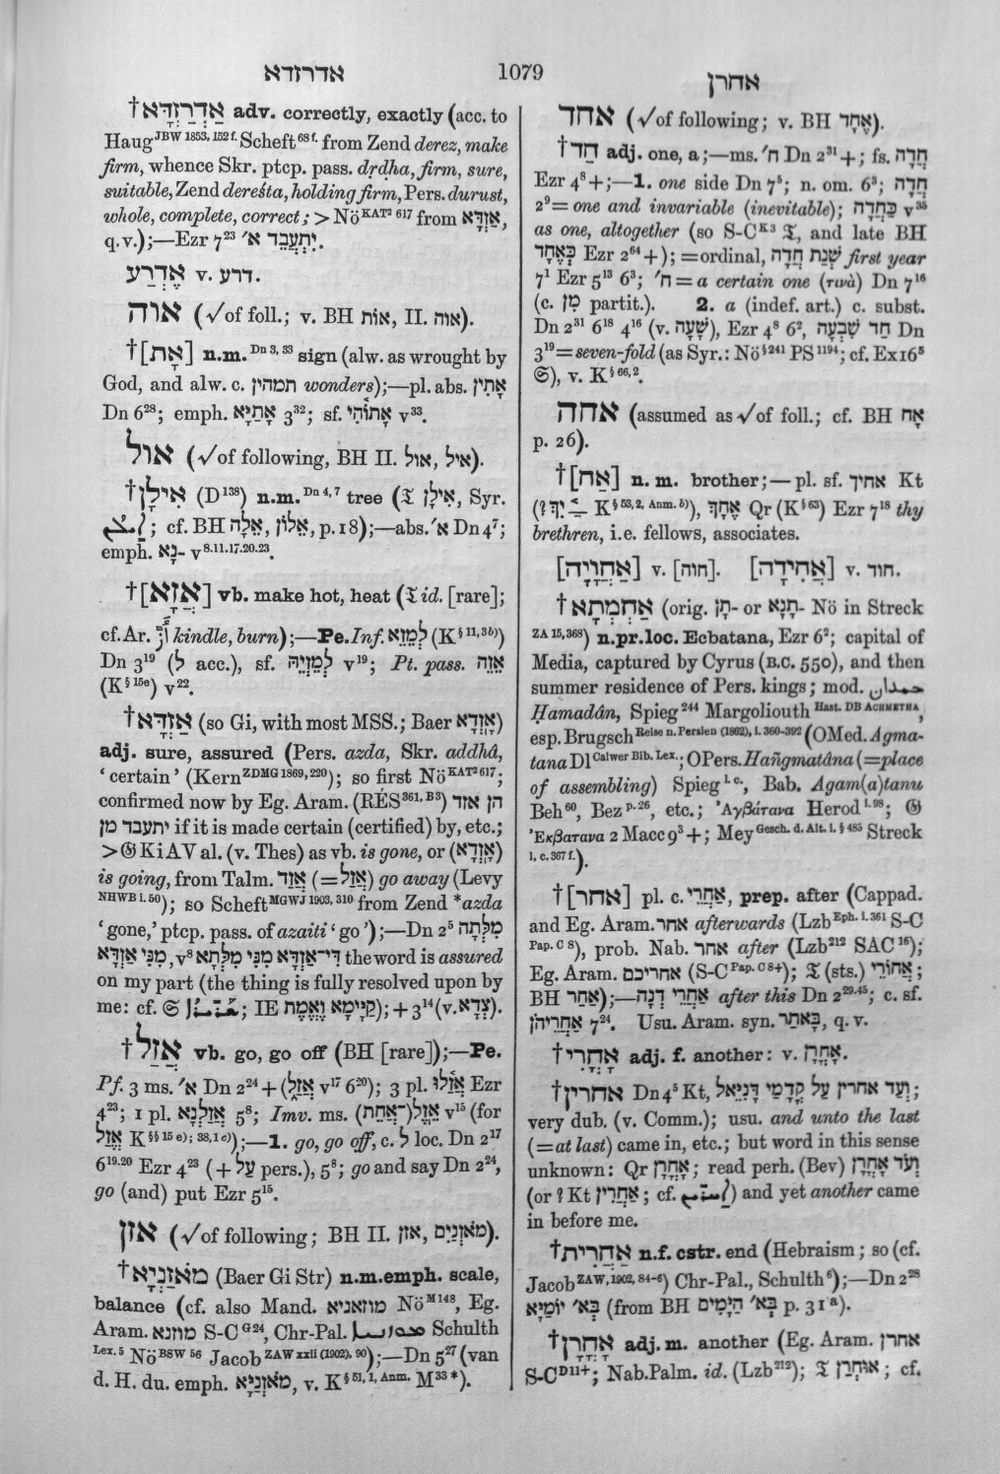 אדרזדא
1079
אחרן
†אַדְרַזְדָּא adv. correctly, exactly (acc. to
Haug JBW 1853, 152 f. Scheft 68 f. from Zend derez, make
firm, whence Skr. ptcp. pass. dṛḍha, firm, sure,
suitable, Zend deresta, holding firm, Pers. durust,
whole, complete, correct; > Nö KAT² 617 from אַזְדָּא,
q.v.);—Ezr 7²³ יִתְעֲבֵד א׳.
אֶדְרַע v. דרע.
אוה (√of foll.; v. BH אות, II. אוה).
†[אָת] n.m. Dn 3, 33 sign (alw. as wrought by
God, and alw. c. תמהין wonders);—pl. abs. אָתִין
Dn 6²⁸; emph. אָתַיָּא 3³²; sf. אָתוֹהִי v³³.
אול (√of following, BH II. אול, איל).
†אִילָן (D¹³⁸) n.m. Dn 4, 7 tree (𝔗 אִילָן, Syr.
; cf. BH אֵלָה, אֵלוֹן, p. 18);—abs. א׳ Dn 4⁷;
emph. ־נָא v 8.11.17.20.23.
†[אֲזָא] vb. make hot, heat (𝔗 id. [rare];
cf. Ar. kindle, burn);—Pe. Inf. לְמֵזֵא (K § 11, 3 b))
Dn 3¹⁹ (ל acc.), sf. לְמֵזְיֵהּ v¹⁹; Pt. pass. אֲזֵה
(K § 15 e) v²².
†אַזְדָּא (so Gi, with most MSS.; Baer אָזְדָא)
adj. sure, assured (Pers. azda, Skr. addhâ,
‘certain’ (Kern ZDMG 1869, 220); so first Nö KAT² 617;
confirmed now by Eg. Aram. (RÉS 361, B3) הן אזד
יתעבד מן if it is made certain (certified) by, etc.;
>𝔊 Ki AV al. (v. Thes) as vb. is gone, or (אָזְדָא)
is going, from Talm. אֲזַד (=אֲזַל) go away (Levy
NHWB i. 50); so Scheft MGWJ 1903, 310 from Zend *azda
‘gone,’ ptcp. pass. of azaiti ‘go’);—Dn 2⁵ מִלְּתָה
מִנִּי אַזְדָּא, v⁸ דִּי־אַזְדָּא מִנִּי מִלְּתָא the word is assured
on my part (the thing is fully resolved upon by
me: cf. 𝔖 ; IE קַיָּימָא וֶאֱמֶת); + 3¹⁴ (v. צְדָא).
†אֲזַל vb. go, go off (BH [rare]);—Pe.
Pf. 3 ms. א׳ Dn 2²⁴ + (אֲזַל v¹⁷ 6²⁰); 3 pl. אֲזַלוּ Ezr
4²³; 1 pl. אֲזַלְנָא 5⁸; Imv. ms. אֵזֶל־(אֲחֵת) v¹⁵ (for
אֱזֵל K §§ 15 e); 38, 1 c));—1. go, go off, c. ל loc. Dn 2¹⁷
6¹⁹·²⁰ Ezr 4²³ (+ עַל pers.), 5⁸; go and say Dn 2²⁴,
go (and) put Ezr 5¹⁵.
אזן (√of following; BH II. אזן, מֹאזְנַיִם).
†מֹאזַנְיָא (Baer Gi Str) n.m.emph. scale,
balance (cf. also Mand. מוזאניא Nö M 148, Eg.
Aram. מוזנא S-C G 24, Chr-Pal. Schulth
Lex. 5 Nö BSW 56 Jacob ZAW xxii (1902), 90);—Dn 5²⁷ (van
d. H. du. emph. מֹאזַנְיָא, v. K § 51, 1, Anm. M 33 *).
אחד (√of following; v. BH אֶחָד).
†חַד adj. one, a;—ms. ח׳ Dn 2³¹ +; fs. חֲדָה
Ezr 4⁸ +;—1. one side Dn 7⁵; n. om. 6³; חֲדָה
2⁹= one and invariable (inevitable); כַּחֲדָה v³⁵
as one, altogether (so S-C K 3 𝔗, and late BH
כְּאֶחָד Ezr 2⁶⁴ +); =ordinal, שְׁנַת חֲדָה first year
7¹ Ezr 5¹³ 6³; ח׳ = a certain one (τινὰ) Dn 7¹⁶
(c. מִן partit.). 2. a (indef. art.) c. subst.
Dn 2³¹ 6¹⁸ 4¹⁶ (v. שָׁעָה), Ezr 4⁸ 6², חַד שִׁבְעָה Dn
3¹⁹=seven-fold (as Syr.: Nö § 241 PS 1194; cf. Ex 16⁵
𝔖), v. K § 66, 2.
אחה (assumed as √of foll.; cf. BH אָח
p. 26).
†[אַח] n. m. brother;—pl. sf. אחיך Kt
(? ־יִךְ K § 53, 2, Anm. b)), אֶחָךְ Qr (K § 63) Ezr 7¹⁸ thy
brethren, i.e. fellows, associates.
[אַחֲוָיָה] v. [חוה]. [אֲחִידָה] v. חוד.
†אַחְמְתָא (orig. ־תָן or ־תָנָא Nö in Streck
ZA 15, 368) n.pr.loc. Ecbatana, Ezr 6²; capital of
Media, captured by Cyrus (B.C. 550), and then
summer residence of Pers. kings; mod. همدان
Ḥamadân, Spieg 244 Margoliouth Hast. DB ACHMETHA,
esp. Brugsch Reise n. Persien (1862), i. 360-392 (OMed. Agma-
tana Dl Calwer Bib. Lex.; OPers. Hañgmatâna (=place
of assembling) Spieg l. c., Bab. Agam(a)tanu
Beh 60, Bez p. 26, etc.; Ἀγβάτανα Herod i. 98; 𝔊
Ἐκβατανα 2 Macc 9³ +; Mey Gesch. d. Alt. i. § 485 Streck
l. c. 367 f.).
†[אחר] pl. c. אַחֲרֵי, prep. after (Cappad.
and Eg. Aram. אחר afterwards (Lzb Eph. i. 361 S-C
Pap. C 8), prob. Nab. אחר after (Lzb 212 SAC 16);
Eg. Aram. אחריכם (S-C Pap. C 8+); 𝔗 (sts.) אֲחוֹרֵי;
BH אַחַר);—אַחֲרֵי דְנָה after this Dn 2²⁹·⁴⁵; c. sf.
אַחֲרֵיהוֹן 7²⁴. Usu. Aram. syn. בָּאתַר, q. v.
†אָחֳרִי adj. f. another: v. אָחֳרָן.
†אחרין Dn 4⁵ Kt, וְעַד אחרין עַל קָדָמַי דָּנִיֵּאל;
very dub. (v. Comm.); usu. and unto the last
(=at last) came in, etc.; but word in this sense
unknown: Qr אָחֳרָן; read perh. (Bev) וְעֹד אָחֳרָן
(or ? Kt אָחֳרֵין; cf. ) and yet another came
in before me.
†אַחֲרִית n.f. cstr. end (Hebraism; so (cf.
Jacob ZAW, 1902, 84-6) Chr-Pal., Schulth 6);—Dn 2²⁸
בְּא׳ יוֹמַיָּא (from BH בְּא׳ הַיָּמִים p. 31 a).
†אָחֳרָן adj. m. another (Eg. Aram. אחרן
S-C D 11+; Nab. Palm. id. (Lzb 212); 𝔗 אוּחְרָן; cf.